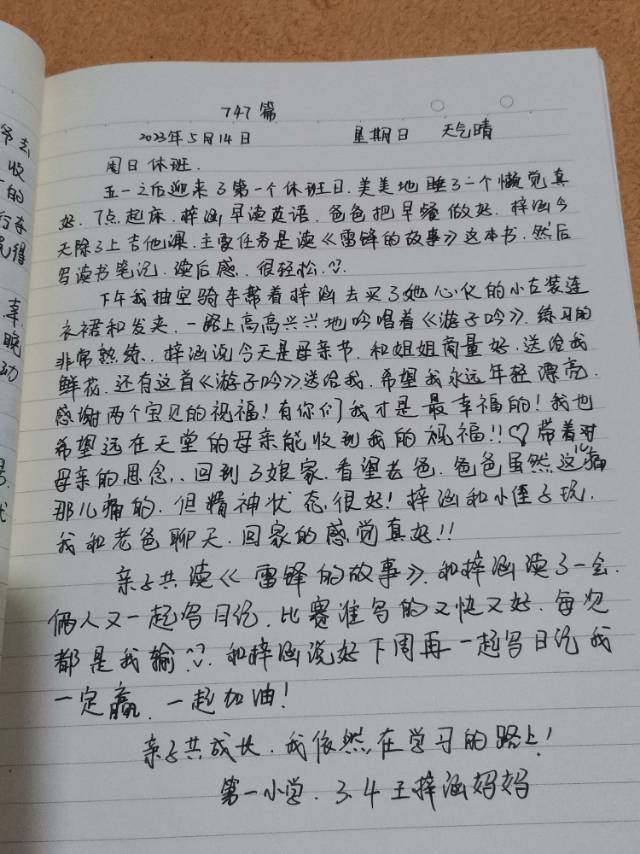 747篇
2023年5月14日 星期日 天气晴
周日休班.
五一之后迎来了第一个休班日.美美地睡了一个懒觉真
好.7点起床.梓涵早读英语.爸爸把早餐做好.梓涵今
天除了上吉他课.主要任务是读《雷锋的故事》这本书.然后
写读书笔记.读后感.很轻松.
下午我抽空骑车带着梓涵去买了她心仪的小古装连
衣裙和发夹.一路上高高兴兴地吟唱着《游子吟》.练习的
非常熟练.梓涵说今天是母亲节.和姐姐商量好.送给我
鲜花.还有这首《游子吟》送给我.希望我永远年轻漂亮.
感谢两个宝贝的祝福!有你们我才是最幸福的!我也
希望远在天堂的母亲能收到我的祝福!!♡带着对
母亲的思念..回到了娘家.看望老爸.爸爸虽然这儿痛
那儿痛的.但精神状态很好!梓涵和小侄子玩.
我和老爸聊天.回家的感觉真好!!
亲子共读《雷锋的故事》.和梓涵读了一会.
俩人又一起写日记.比赛谁写的又快又好.每次
都是我输.和梓涵说好下周再一起写日记我
一定赢.一起加油!
亲子共成长.我依然在学习的路上!
第一小学.3.4王梓涵妈妈